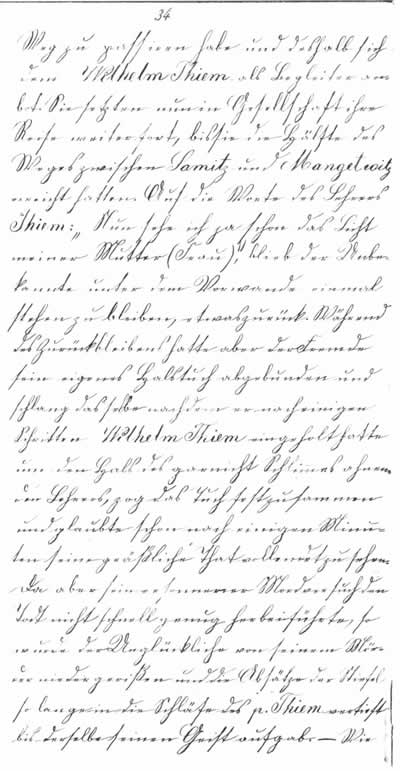 34
Weg zu passieren habe und deshalb sich
dem Wilhelm Thiem als Begleiter an-
böt. Sie setzten nun in Gesellschaft ihre
Reise weiter fort, bis sie die Hälfte des
Weges zwischen Samitz und Mangelwitz
erreicht hatten. Auf die Worte des Lehrers
Thiem: „Nun sehe ich ja schon das Licht
meiner Mutter (Frau)", blieb der Unbe-
kannte unter dem Vorwande einmal
stehen zu bleiben, etwas zurück. Während
des Zurückbleibens hatte aber der Fremde
sein eigenes Halstuch abgebunden und
schlang dasselbe nachdem er nach einigen
Schritten Wilhelm Thiem eingeholt hatte
um den Hals des gar nichts Schlimes ahnen-
den Lehrers, zog das Tuch fest zusammen
und glaubte schon nach einigen Minu-
ten seine gräßliche That vollendet zu sehen.
Da aber sein ersonnener Mordversuch den
Tod nicht schnell genug herbeiführte, so
wurde der Unglückliche von seinem Mör-
der niedergerißen und die Absätze der Stiefel
so lange in die Schläfe des p. Thiem vertieft
bis derselbe seinen Geist aufgab. — Wie